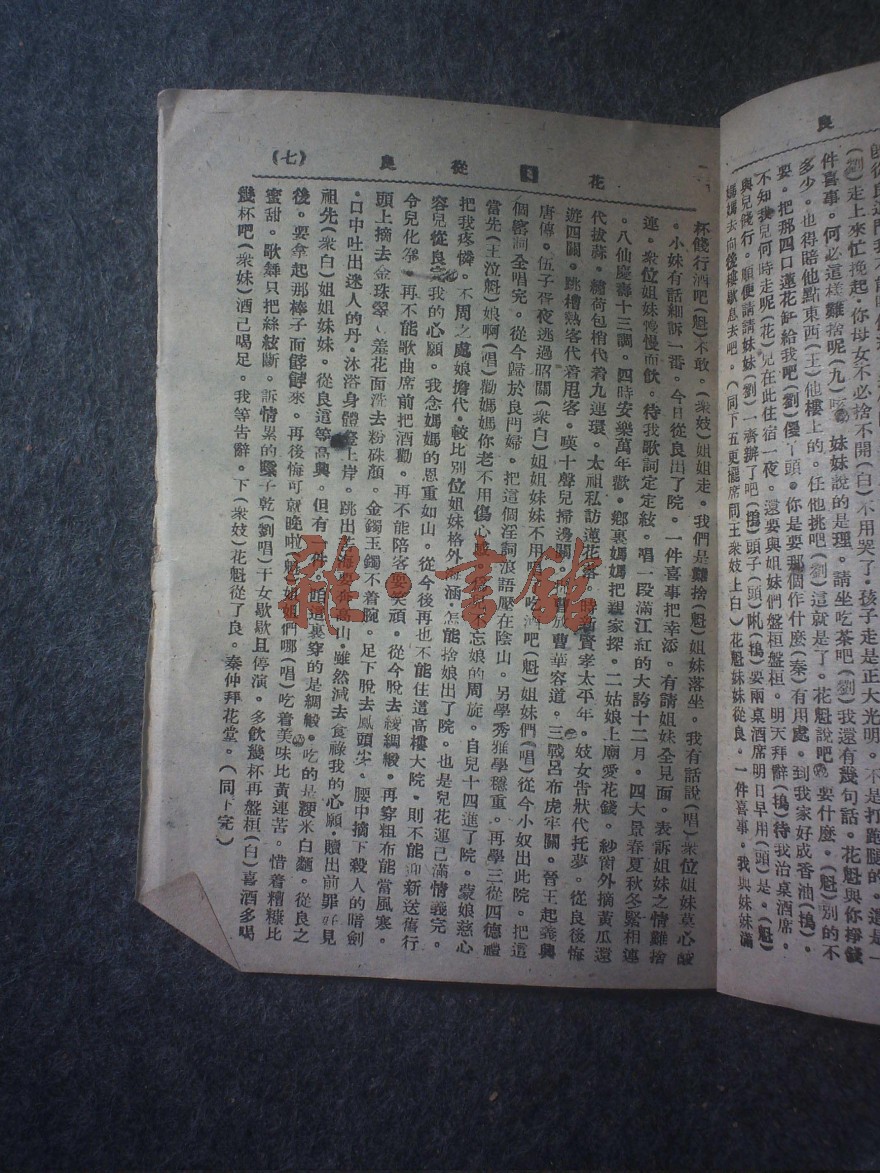 良
(劉)走上來忙挽起。你母女不必捨不開(白)不用哭了。孩子走是正大光明。不是打跑腿的。還是一
件喜事。何必這樣難捨呢(九)哎。妹妹說的是理。請坐吃茶吧(劉)我還有幾句話。花魁與你掙錢
多少。也得賠他點東西(王)他樓上的。任他挑吧(劉)這就是了。花魁說吧。要什麼。(魁)別的不
要。把那四口蓮花缸給我吧(劉)傻丫頭。你是要那個作什麼(秦)有用處。到我家好成香油(鴇)。
不知我兒何時走呢(花)兒在此住宿一夜。還要與姐妹們盤桓盤桓。明天拜辭(鴇)待我治桌酒席。
與兒餞行。順便請請妹妹(劉)一齊辦了吧(鴇)頭子(頭)吼(鴇)要兩桌酒席明日早用(頭)是。(魁)
媽媽去向後樓歇息去吧。(同下五更擺席同王衆妓上白)花魁妹妹從良。一件喜事。我與妹妹滿
花魁從良 (七)
杯餞行酒吧(魁)不敢。(衆妓)姐姐走。我們是難捨(魁)姐妹落坐。我有話說(唱)衆位姐妹莫心酸
。小妹有話細訴一番。今日從良出了院。一件喜事把幸添。有請姐妹全見面。表訴姐妹之情難捨
連。衆位姐妹慢慢而飲。待我歌詞定定絃。唱一段滿江紅的大誇十二月。四大景春夏秋冬緊相連
。八仙慶壽十三調。四時安樂萬年歡。鄉裏媽媽把親家探。二姑娘上廟愛花錢。紗窗外摘黃瓜還
代拔蒜。繡荷包梢代着九連環。太祖私訪蓮花落。時新賢孝太平年。妓女告狀代托夢。從良後悔
遊四關。跳槽熟客代着甩客。嘆十聲兒掃邊關。擋曹放曹華容道。三戰呂布虎牢關。晉王起義興
唐傳。伍子胥夜逃過昭關(衆白)姐姐妹妹不用唱。吃酒吧(魁)姐妹們(唱)從今小奴出此院。把這
個窰詞全唱完。從今歸於良門婦。把這個淫詞浪語壓在陰山。另學秀雅學穩重。再學三從四德禮
當先(王泣魁)娘啊(唱)勸媽媽你老不用傷心感。孩兒不忘娘的周旋。自兒十四進了院。蒙娘慈心
把我疼憐。不周之處娘擔代。較比別位姐妹格外海涵。怎能捨娘出了院。也是兒花運已滿情義完。
容兒從良完我的心願。我念媽媽的恩重如山。從今後再也不能住這高樓大院。則不能迎新送舊行
令兒化拳。再不能歌曲席前把酒勸。再不能陪客耍笑頑。從今脫去綾綢緞。再穿粗布能當風寒。
頭上摘去金珠翠、羞花面洗去粉硃顏。金鐲玉鐲不着腕。足下脫去鳳頭尖。腰中摘下殺人的暗劍
。口中吐出迷人的丹。沐浴身體登上岸。跳出苦海要奔高山。雖然減去食祿我的心願。贖出前罪好見
祖先(衆白)姐姐妹妹。從良這等高興。但有一件。咱這裏穿的是綢緞。吃的是粳米白麵。從良之
後。要拿起那棒子而餑餑來。再後悔可就晚啦(魁)姐姐們哪(唱)吃着美味比黃連苦。惜着糟糠比
蜜甜。歌舞只把絲絃斷。訴情累的墜子乾(劉唱)干女歇歇且停演。多飲幾杯再盤桓(白)喜酒多喝
幾杯吧(衆妹)酒已喝足。我等告辭。下(衆妓)花魁從了良。秦仲拜花堂。(同下完)
龍·書館